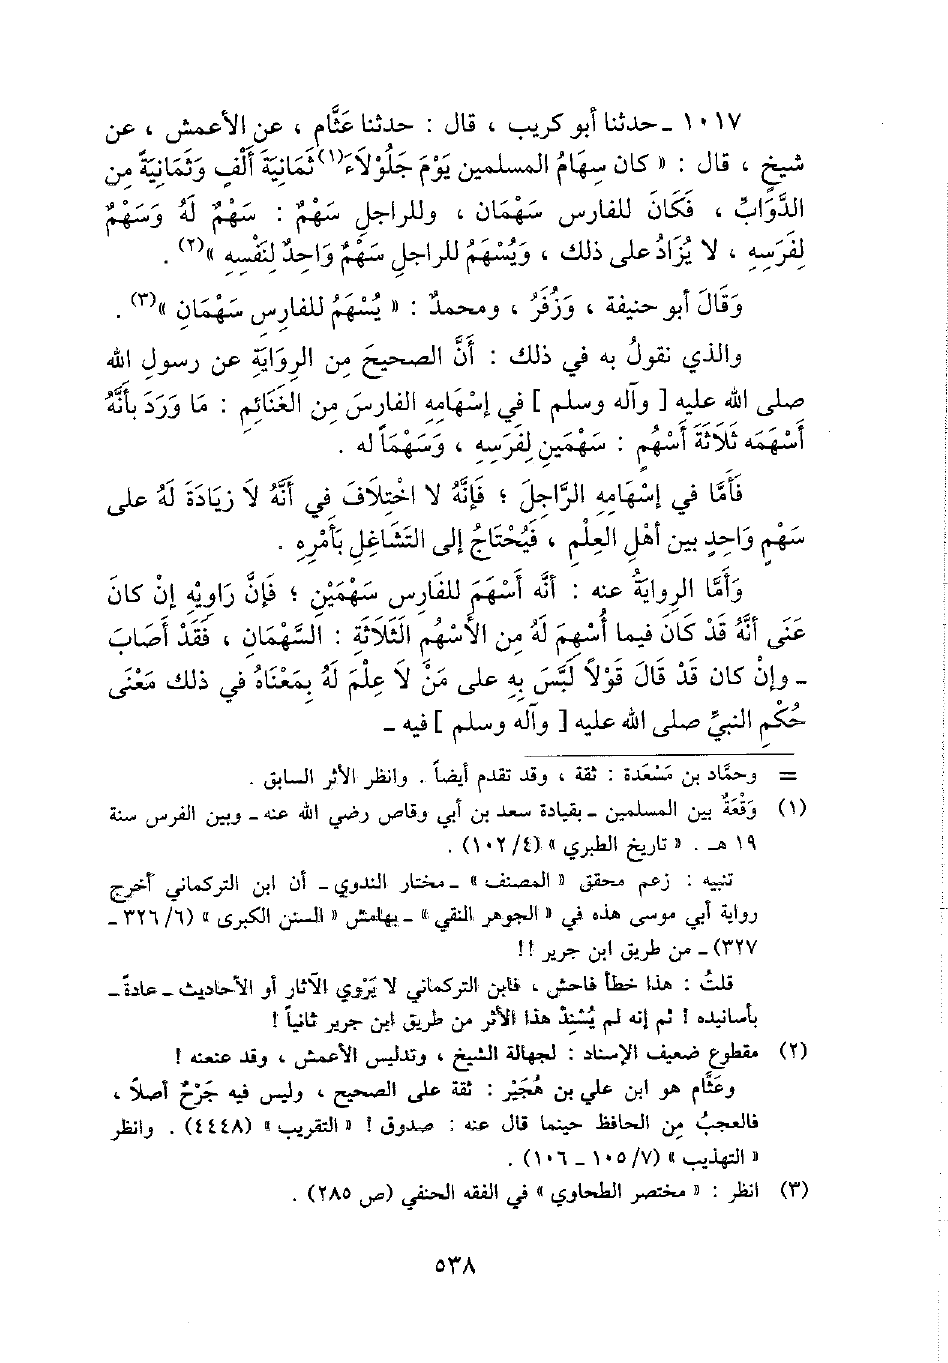 ١٠١٧ ـ حدثنا أبو كريب ، قال : حدثنا عَثَّام ، عن الأعمش ، عن
شيخ ، قال : « كان سِهَامُ المسلمين يَوْمَ جَلُوْلَاءَ(١) ثَمَانِيَةَ أَلْفٍ وَثَمَانِيَةً مِن
الدَّوَابِّ ، فَكَانَ للفارس سَهْمَان ، وللراجلِ سَهْمٌ : سَهْمٌ لَهُ وَسَهْمٌ
لِفَرَسِهِ ، لا يُزَادُ على ذلك ، وَيُسْهَمُ للراجلِ سَهْمٌ وَاحِدٌ لِنَفْسِهِ »(٢) .
وَقَالَ أبو حنيفة ، وَزُفَرُ ، ومحمدٌ : « يُسْهَمُ للفارِسِ سَهْمَانِ »(٣) .
والذي نقولُ به في ذلك : أَنَّ الصحيحَ مِن الرِوَايَةِ عن رسولِ الله
صلى الله عليه [ وآله وسلم ] في إِسْهَامِهِ الفارسَ مِن الغَنَائِمِ : مَا وَرَدَ بأَنَّهُ
أَسْهَمَه ثَلَاثَةَ أَسْهُمٍ : سَهْمَينِ لِفَرَسِهِ ، وَسَهْمَاً له .
فَأَمَّا في إِسْهَامِهِ الرَّاجِلَ ؛ فَإِنَّهُ لا اخْتِلَافَ في أَنَّهُ لَا زِيَادَةَ لَهُ على
سَهْمٍ وَاحِدٍ بين أهْلِ العِلْمِ ، فَيُحْتَاجُ إلى التَشَاغِلِ بَأَمْرِهِ .
وَأَمَّا الروايَةُ عنه : أنَّه أَسْهَمَ للفَارِسِ سَهْمَيْنِ ؛ فَإِنَّ رَاوِيْهِ إنْ كانَ
عَنَى أنَّهُ قَدْ كَانَ فيما أُسْهِمَ لَهُ مِن الأَسْهُمِ الثَلَاثَةِ : السَّهْمَان ، فَقَدْ أَصَابَ
ـ وإنْ كان قَدْ قَالَ قَوْلاً لَبَّسَ بِهِ على مَنْ لَا عِلْمَ لَهُ بِمَعْنَاهُ في ذلك مَعْنَى
حُكْمِ النبيِّ صلى الله عليه [ وآله وسلم ] فيه ـ
= وحمَّاد بن مَسْعَدة : ثقة ، وقد تقدم أيضاً . وانظر الأثر السابق .
(١) وَقْعَةٌ بين المسلمين ـ بقيادة سعد بن أبي وقاص رضي الله عنه ـ وبين الفرس سنة
١٩ هـ . « تاريخ الطبري » (٤/ ١٠٢) .
تنبيه : زعم محقق « المصنف » ـ مختار الندوي ـ أن ابن التركماني أخرج
رواية أبي موسى هذه في « الجوهر النقي » ـ بهامش « السنن الكبرى » (٦/ ٣٢٦ ـ
٣٢٧) ـ من طريق ابن جرير !!
قلتُ : هذا خطأ فاحش ، فابن التركماني لا يَرْوي الآثار أو الأحاديث ـ عادةً ـ
بأسانيده ! ثم إنه لم يُسْنِدْ هذا الأثر من طريق ابن جرير ثانياً !
(٢) مقطوع ضعيف الإسناد : لجهالة الشيخ ، وتدليس الأعمش ، وقد عنعنه !
وعَثَّام هو ابن علي بن هُجَيْر : ثقة على الصحيح ، وليس فيه جَرْحٌ أصلاً ،
فالعجبُ مِن الحافظ حينما قال عنه : صدوق ! « التقريب » (٤٤٤٨) . وانظر
« التهذيب » (٧/ ١٠٥ ـ ١٠٦) .
(٣) انظر : « مختصر الطحاوي » في الفقه الحنفي (ص ٢٨٥) .
٥٣٨